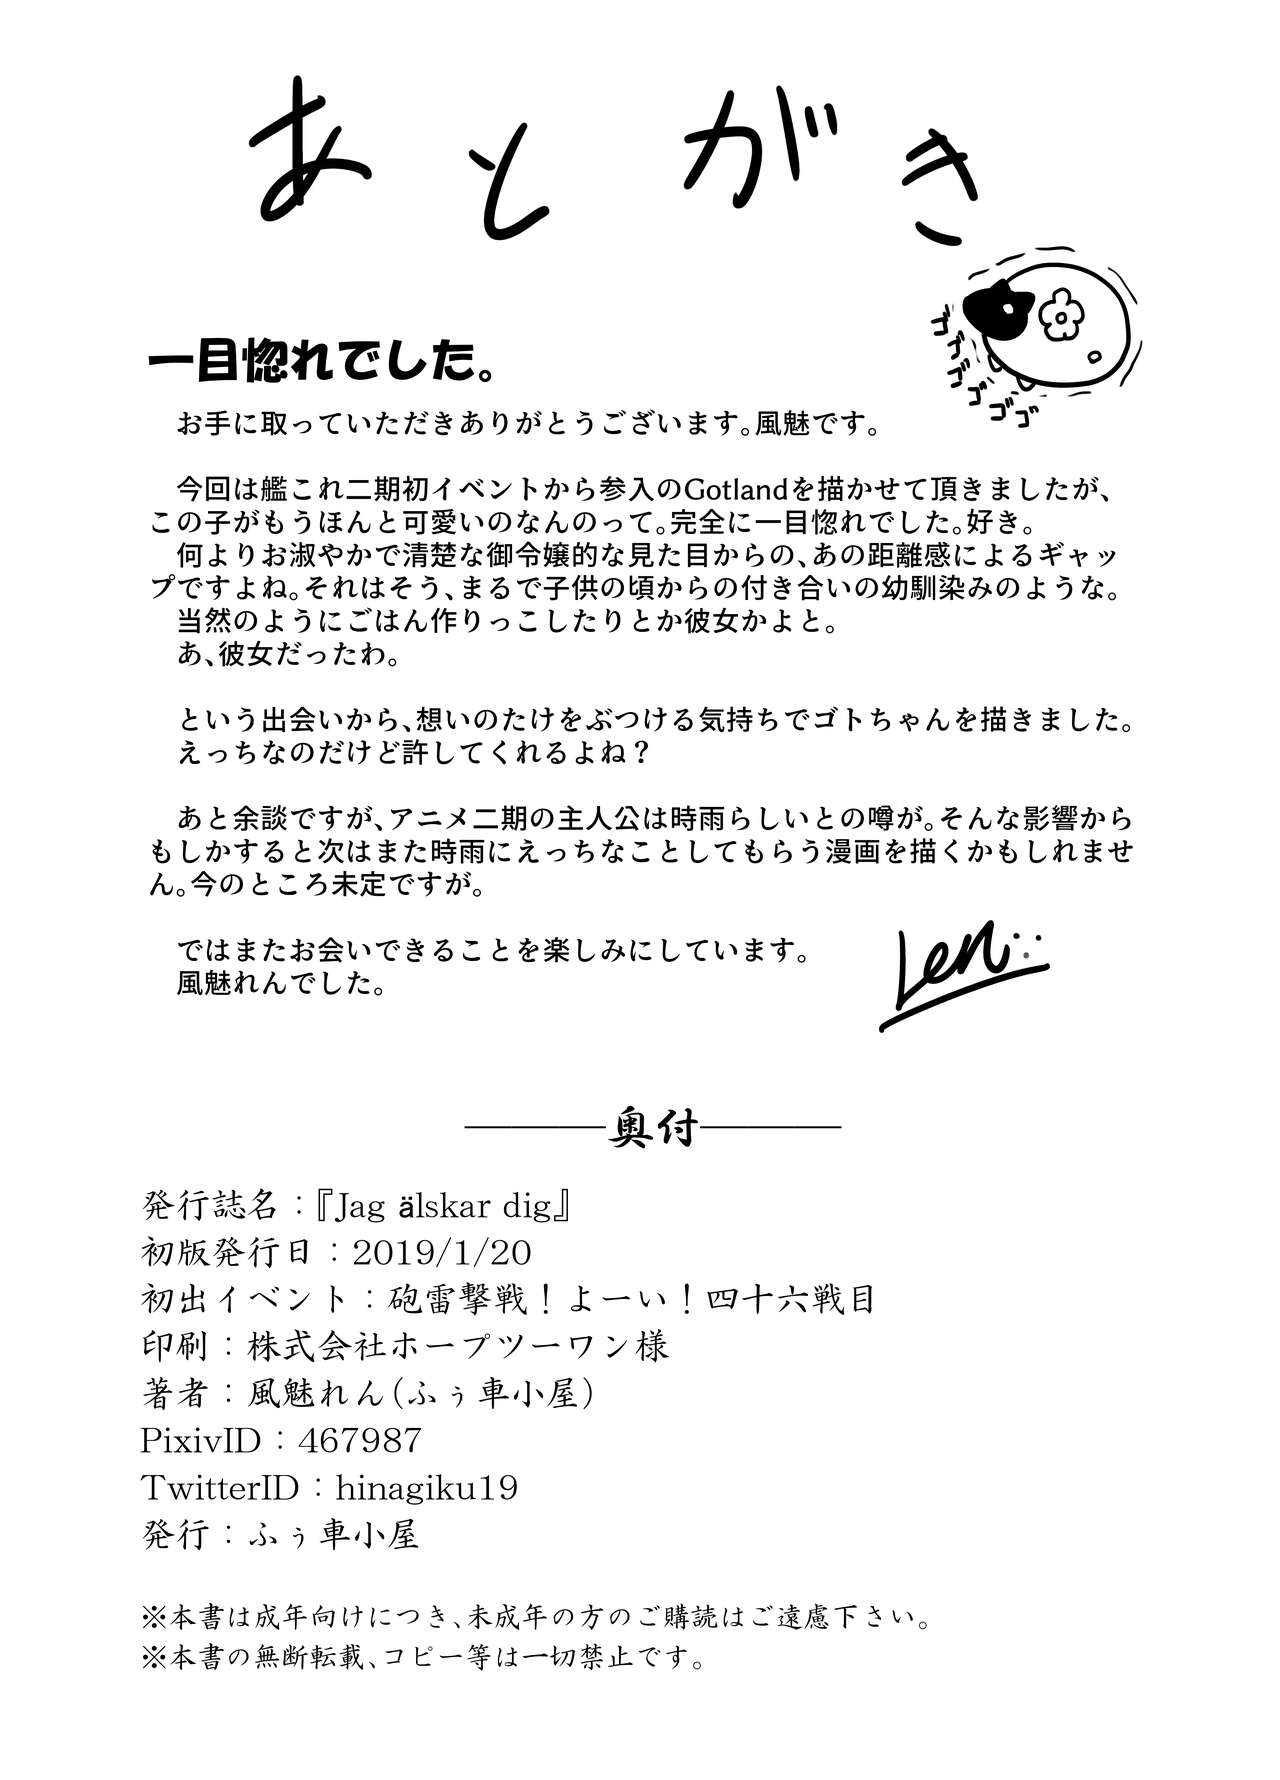 あとがき
ゴゴゴゴゴゴ
一目惚れでした。
お手に取っていただきありがとうございます。風魅です。
今回は艦これ二期初イベントから参入のGotlandを描かせて頂きましたが、
この子がもうほんと可愛いのなんのって。完全に一目惚れでした。好き。
何よりお淑やかで清楚な御令嬢的な見た目からの、あの距離感によるギャッ
プですよね。それはそう、まるで子供の頃からの付き合いの幼馴染みのような。
当然のようにごはん作りっこしたりとか彼女かよと。
あ、彼女だったわ。
という出会いから、想いのたけをぶつける気持ちでゴトちゃんを描きました。
えっちなのだけど許してくれるよね？
あと余談ですが、アニメ二期の主人公は時雨らしいとの噂が。そんな影響から
もしかすると次はまた時雨にえっちなことしてもらう漫画を描くかもしれませ
ん。今のところ未定ですが。
ではまたお会いできることを楽しみにしています。
風魅れんでした。
Len
奥付
発行誌名：『Jag älskar dig』
初版発行日：2019/1/20
初出イベント：砲雷撃戦！よーい！四十六戦目
印刷：株式会社ホープツーワン様
著者：風魅れん(ふぅ車小屋)
PixivID：467987
TwitterID：hinagiku19
発行：ふぅ車小屋
※本書は成年向けにつき、未成年の方のご購読はご遠慮下さい。
※本書の無断転載、コピー等は一切禁止です。